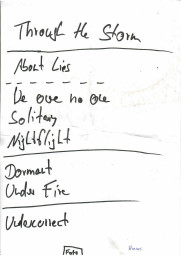 Through the Storm
About Lies
We owe no one
Solitary
Nightflight
Dormant
Under Fire
Undercorrect